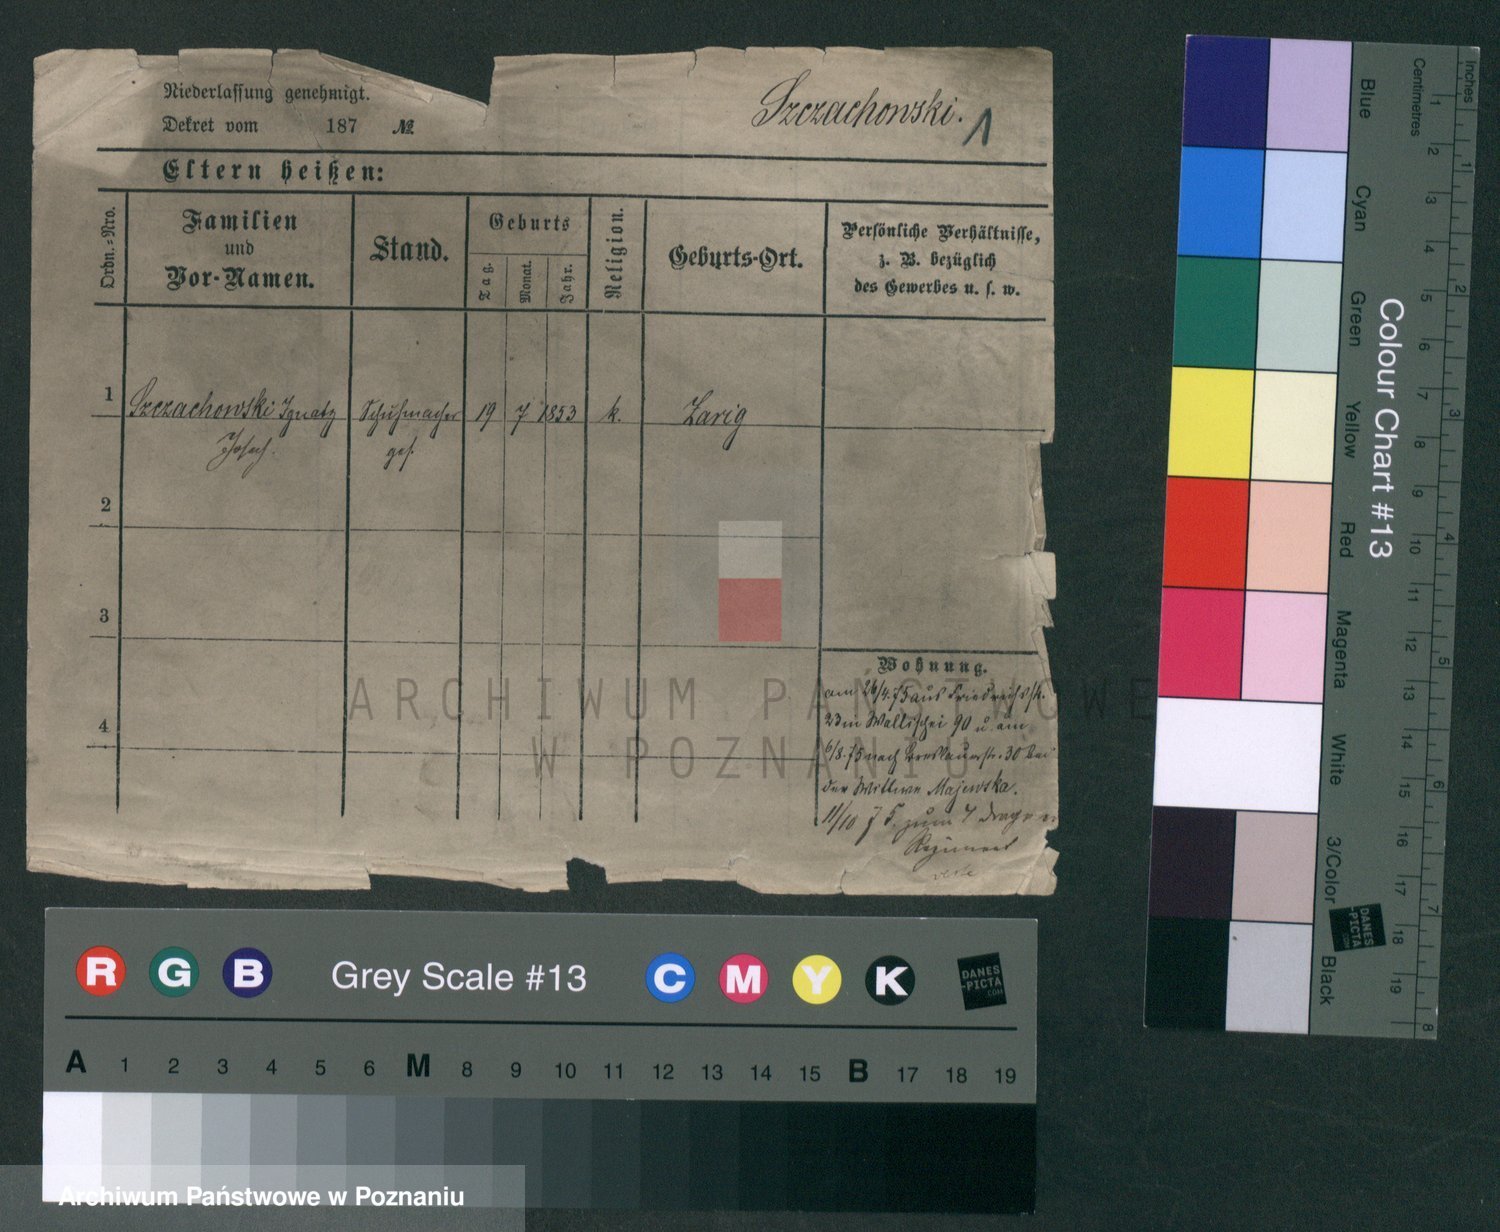 Niederlassung genehmigt.
Dekret vom 187 №
Szczachowski. 1
Eltern heißen:
Ordn.=Nro.
Familien
und
Vor-Namen.
Stand.
Geburts
Tag.
Monat.
Jahr.
Religion.
Geburts-Ort.
Persönliche Verhältnisse,
z. B. bezüglich
des Gewerbes u. s. w.
1 Szczachowski Ignatz Schuhmacher 19 7 1853 k. Zarig
ges.
2
3
4
Wohnung.
am 26/4.75 aus Friedrichsstr.
23 in Wallischei 90 u. am
6/8.75 nach Breslauerstr. 30 bei
der Wittwe Majewska.
11/10 75. zum 4 Dragoner
Regiment
ARCHIWUM PAŃSTWOWE
W POZNANIU
R G B Grey Scale #13 C M Y K
DANES
-PICTA
.COM
A 1 2 3 4 5 6 M 8 9 10 11 12 13 14 15 B 17 18 19
Archiwum Państwowe w Poznaniu
Colour Chart #13
Blue
Cyan
Green
Yellow
Red
Magenta
White
3/Color
Black
Centimetres 1 2 3 4 5 6 7 8 9 10 11 12 13 14 15 16 17 18 19
Inches 1 2 3 4 5 6 7 8
DANES
-PICTA
.COM